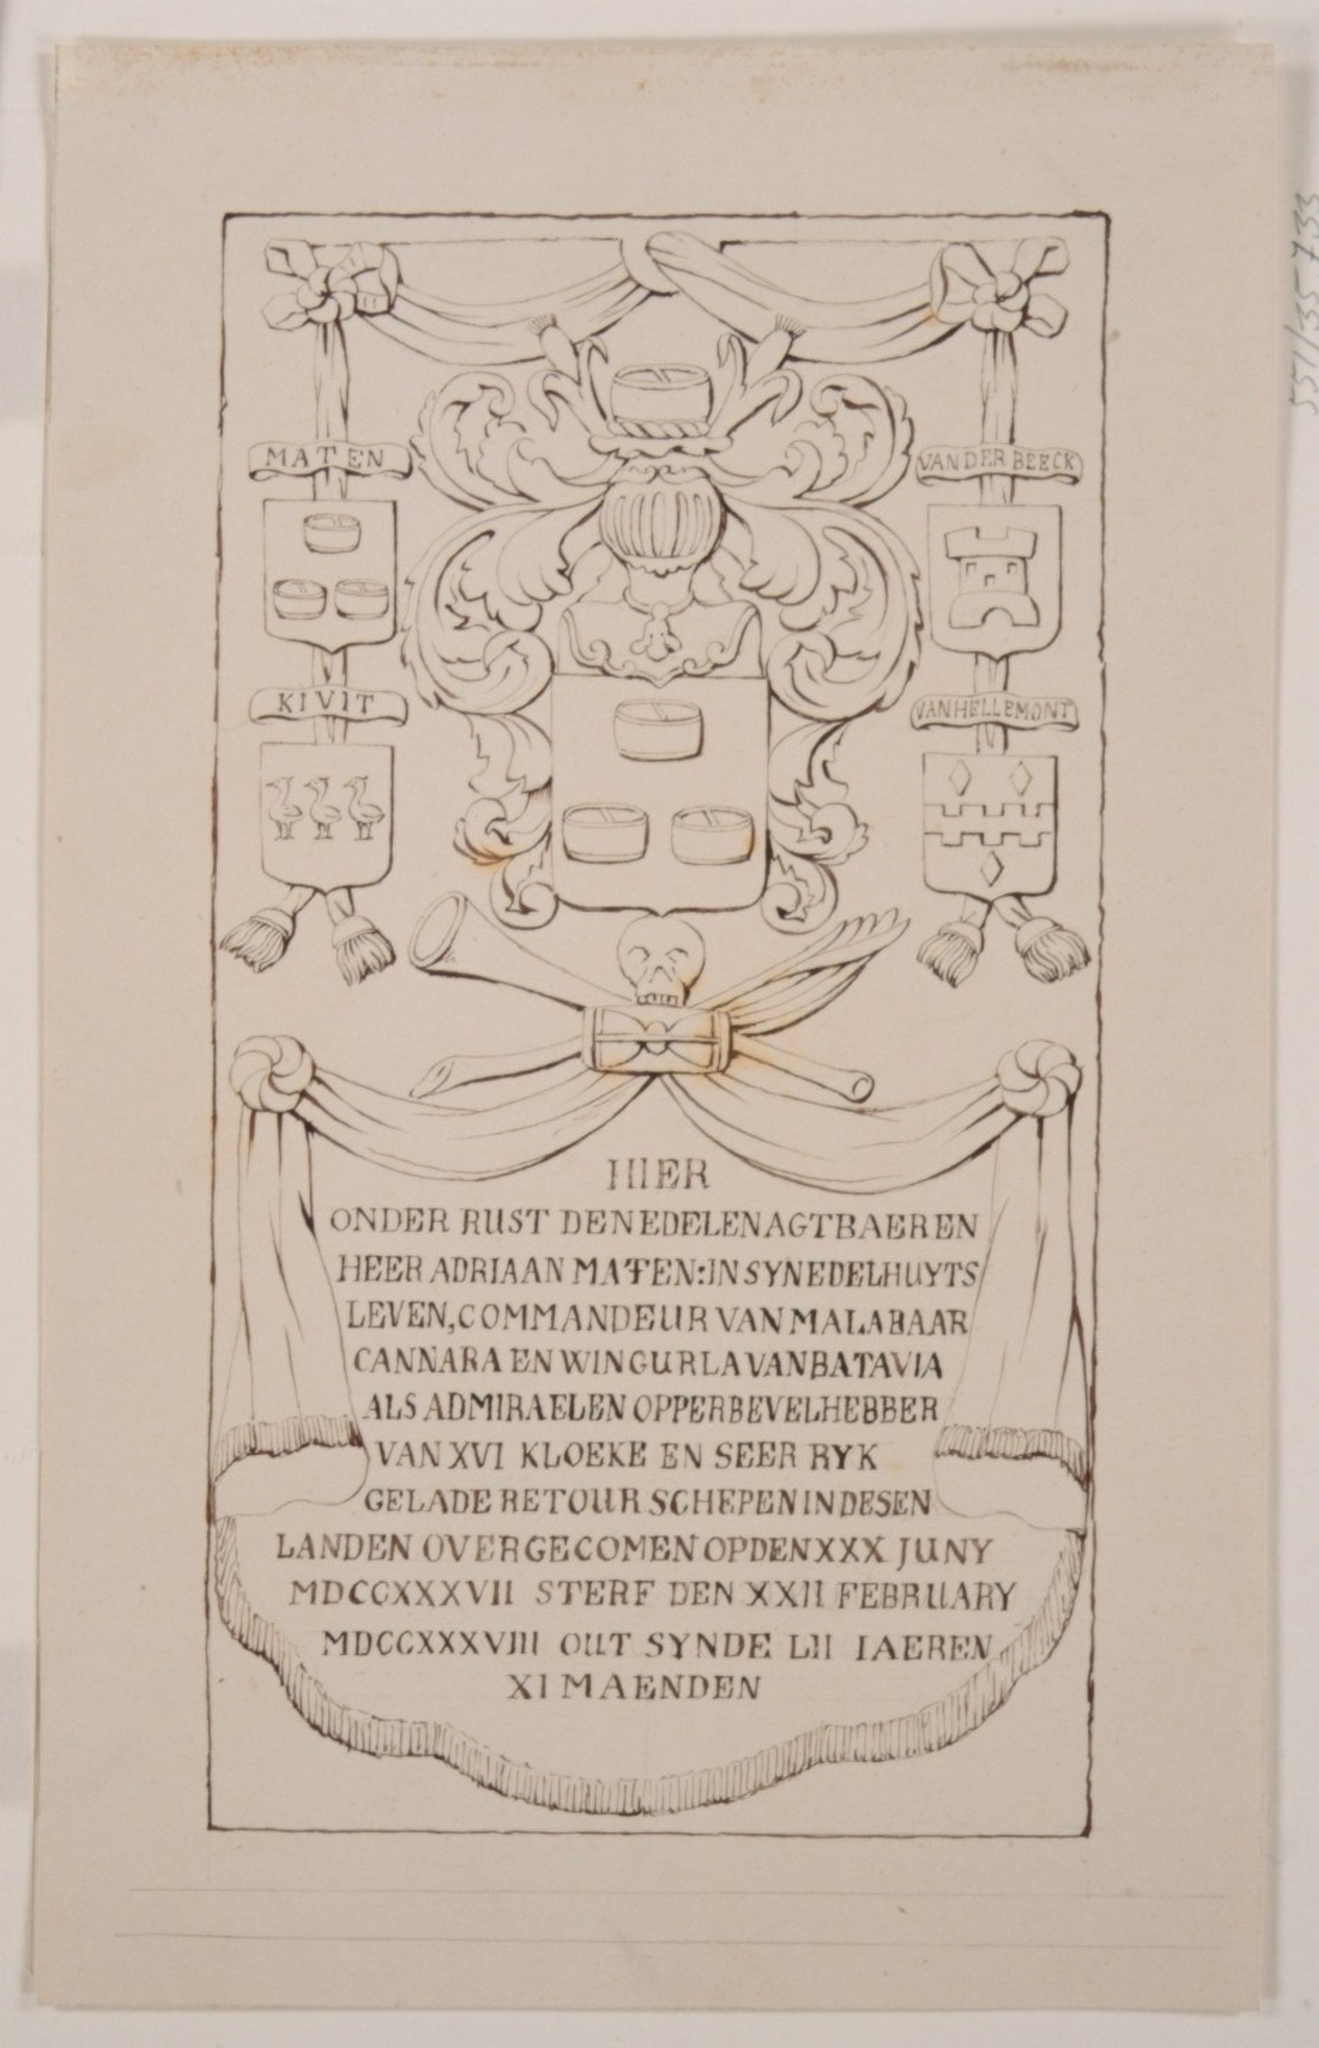 MATEN
VANDER BEECK
KIVIT
VANHELLEMONT
HIER
ONDER RUST DEN EDELEN AGTBAEREN
HEER ADRIAAN MATEN: IN SYN EDELHUYTS
LEVEN, COMMANDEUR VAN MALABAAR
CANNARA EN WINGURLA VAN BATAVIA
ALS ADMIRAEL EN OPPERBEVELHEBBER
VAN XVI KLOEKE EN SEER RYK
GELADE RETOUR SCHEPEN IN DESEN
LANDEN OVERGECOMEN OP DEN XXX JUNY
MDCCXXXVII STERF DEN XXII FEBRUARY
MDCCXXXVIII OUT SYNDE LII IAEREN
XI MAENDEN
551/35733